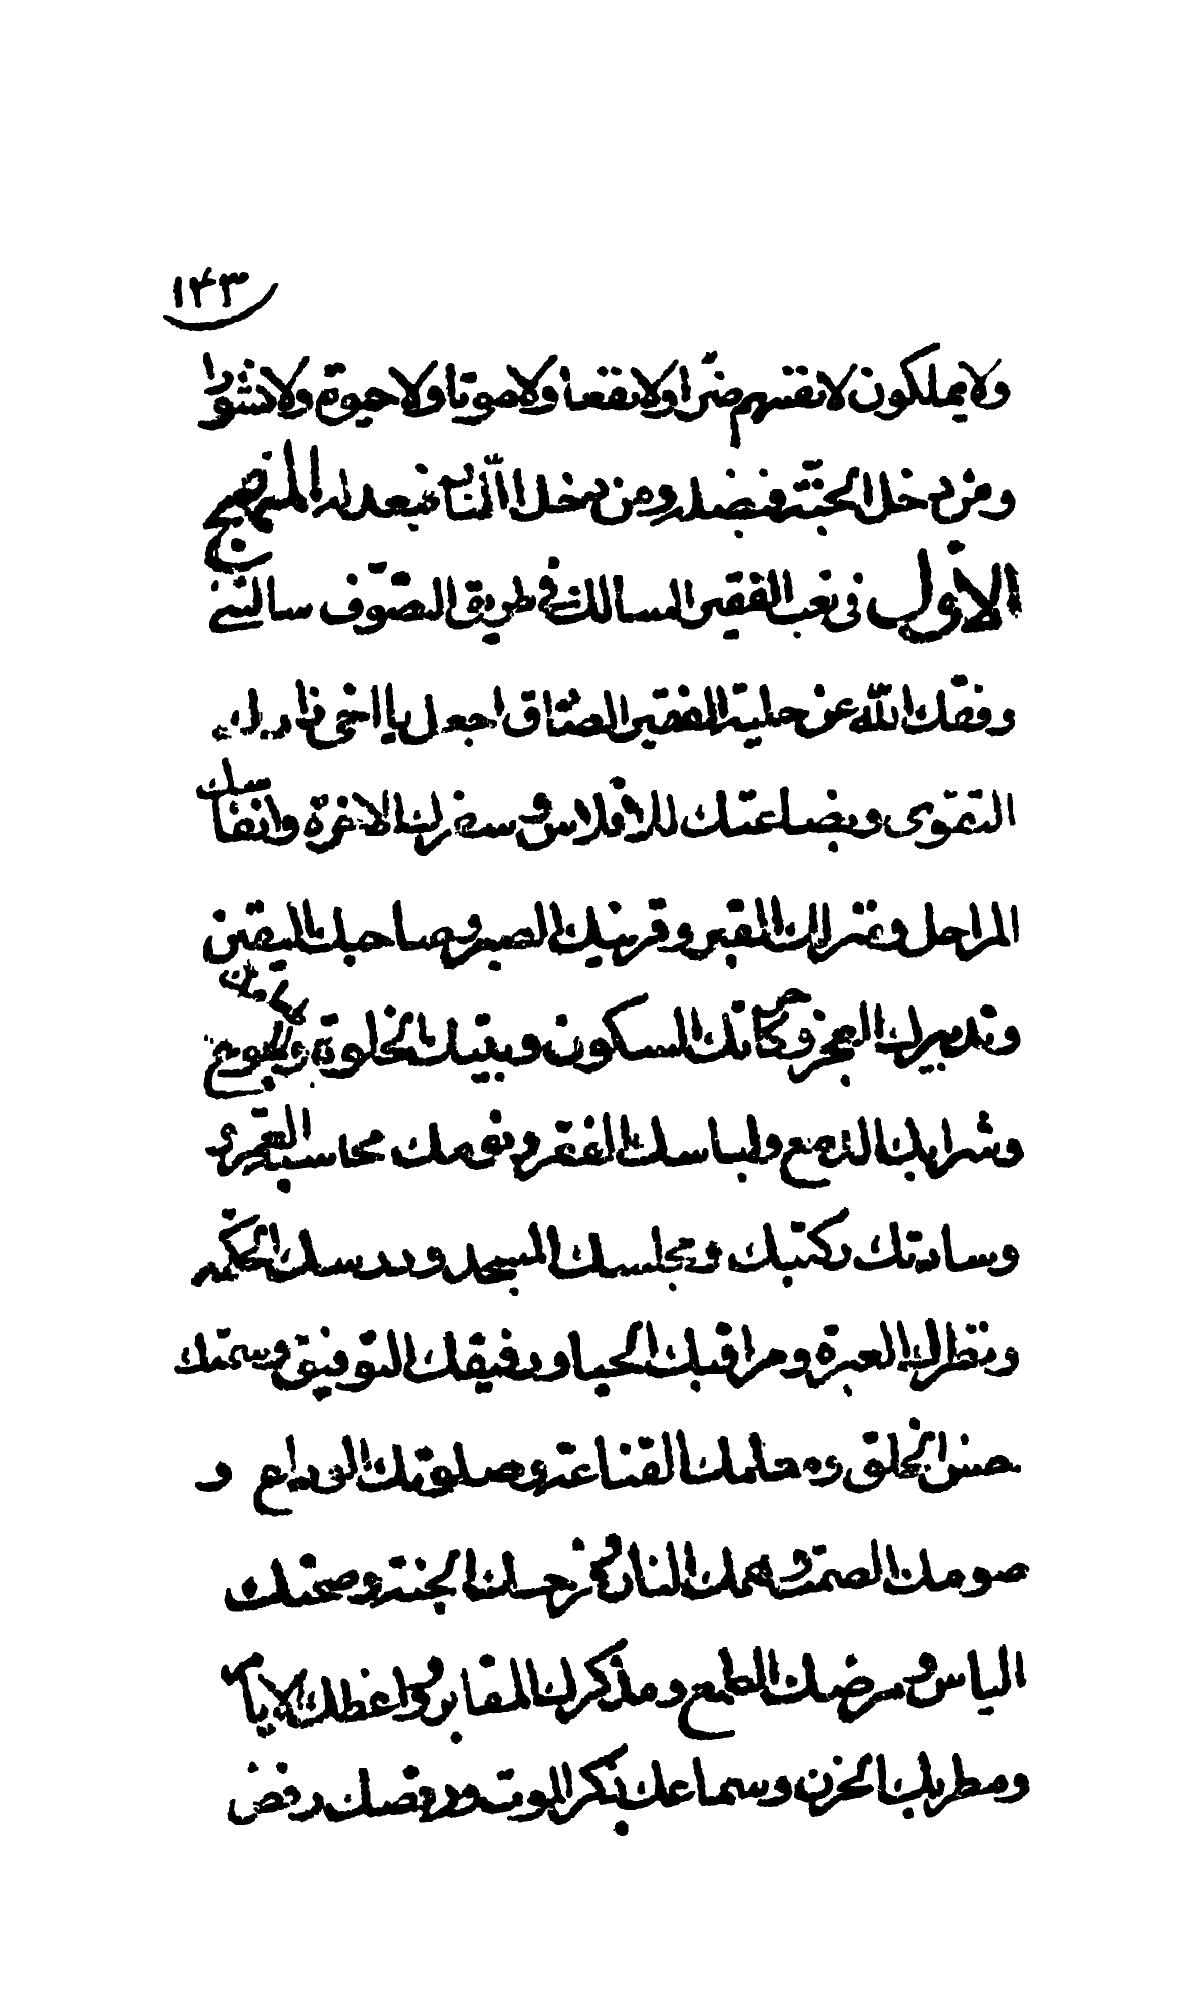 ١٤٣
ولا يملكون لانفسهم ضرّا ولا نفعا ولا موتا ولا حيوة ولا نشورا
ومن دخل الجنّة فبفضله ومن دخل النار فبعدله المنهج
الاوّل فى نعت الفقير السالك فى طريق التصوّف سالتنى
وفقك الله عن حلية الفقير الصادق اجعل يا اخى زادك
التقوى وبضاعتك الافلاس وسفرك الاخرة وانفاسك
المراحل ومنزلك القبر وقرينك الصبر وصاحبك اليقين
وتدبيرك العجز وحركاتك السكون وبيتك الخلوة وطعامك الجوع
وشرابك الدمع ولباسك الفقر ونومك محاسبة
وسادتك ركبتك ومجلسك المسجد ودرسك الحكمه
ونظرك العبرة ومراقبك الحيا ورفيقك التوفيق وسمتك
حسن الخلق ومعلمك القناعة وصلوتك الوداع و
صومك الصمت وهمك النار وفرحك الجنة وصحتك
الياس ومرضك الطمع ومذكرك المقابر وواعظك الايام
ومطربك الحزن وسماعك ذكر الموت ورقصك رفض